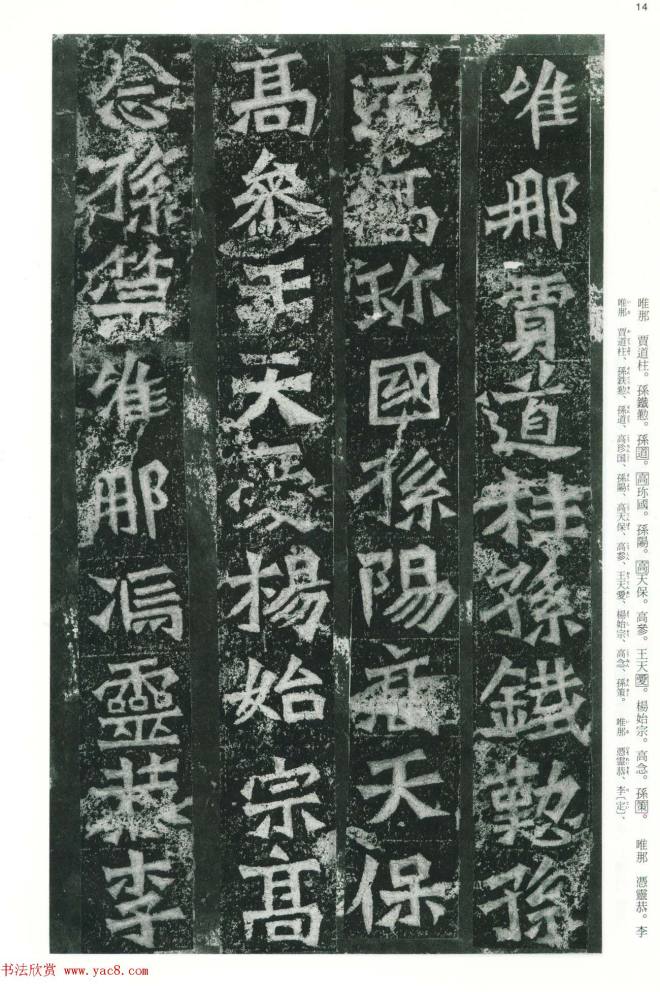 14
唯那賈道柱孫鐵懃孫
道高珎國孫陽高天保
高參王天愛楊始宗高
念孫策唯那馮靈恭李
唯那　賈道柱。孫鐵懃。孫道。高珎國。孫陽。高天保。高參。王天愛。楊始宗。高念。孫策。　唯那　憑靈恭。李
唯那　賈道柱、孫鉄懃、孫道、高珍国、孫陽、高天保、高参、王天愛、楊始宗、高念、孫策。　唯那　憑霊恭、李〔定〕、
书法欣赏 www.yac8.com